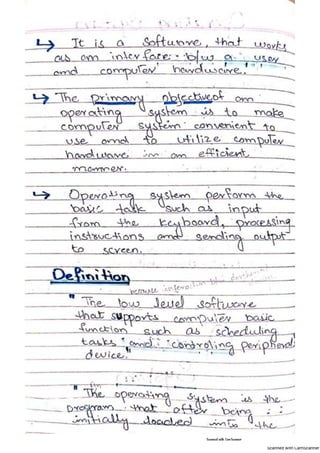 ↳ It is a software, that works
as an interface b/w a user
and computer hardware.
↳ The primary objective of an
operating system is to make
computer system convenient to
use and to utilize computer
hardware in an efficient
manner.
↳ Operating system perform the
basic task such as input
from the keyboard, processing
instructions and sending output
to screen.
Definition
because interaction
"The low level software
that supports computer basic
function such as scheduling
tasks and controling peripheral
device."
"The operating system is the
program that after being
initially loaded into the
Scanned with CamScanner
Scanned with CamScanner